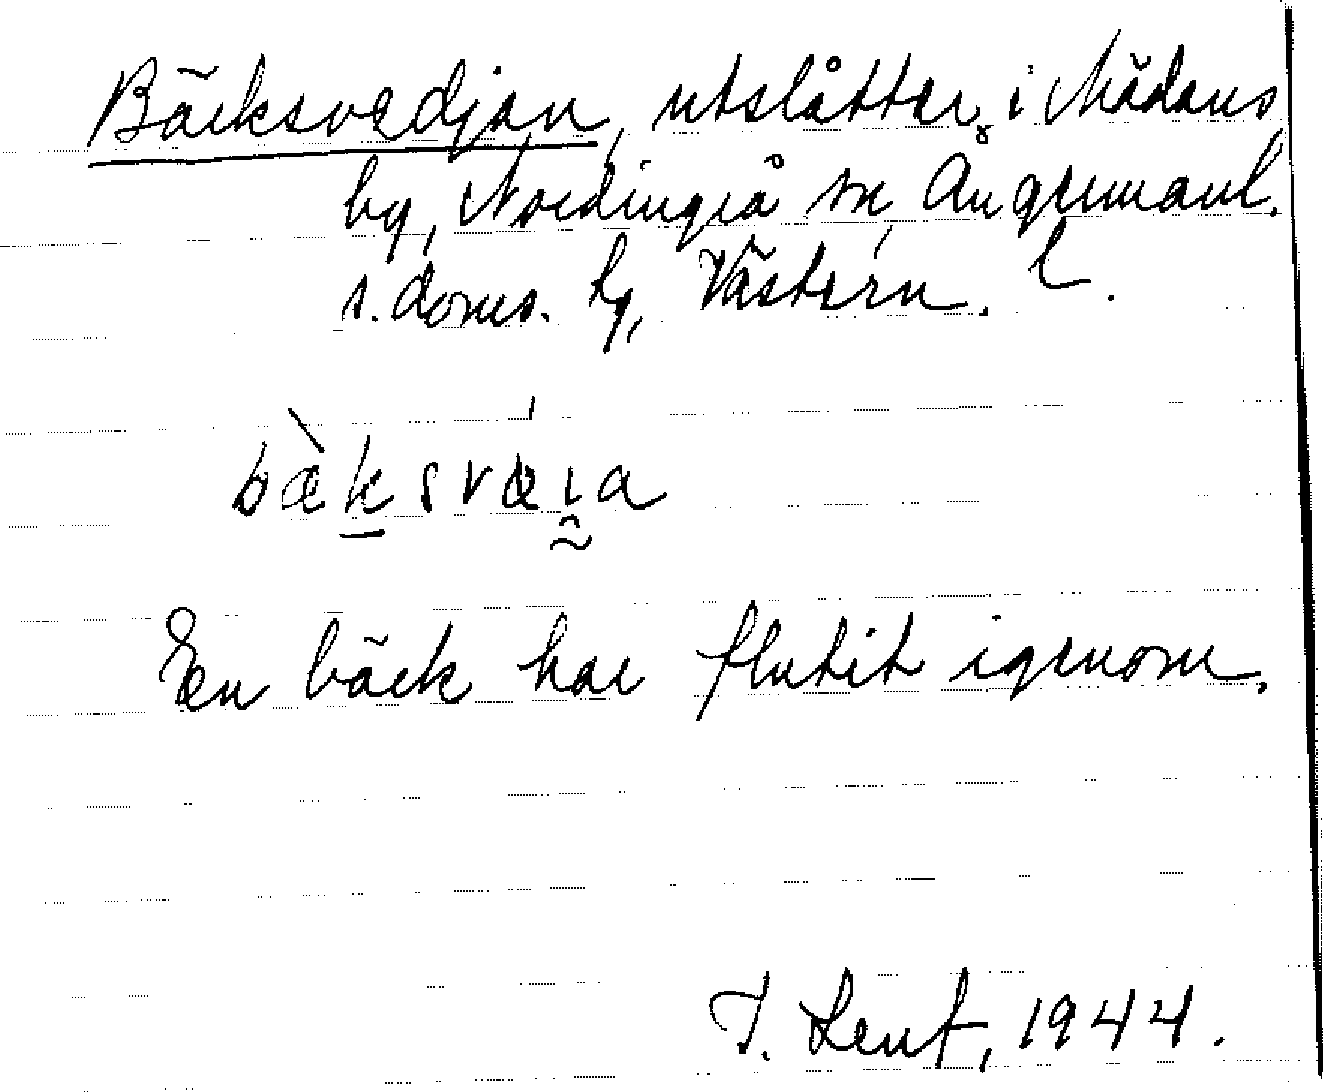 Bäcksvedjan, utslåtter, i Mädans
by, Nordingrå sn, Ångermanl.
s. doms. hg, Västern. l.
bæ̀ksvæi̯a
En bäck har flutit igenom.
J. Lenf, 1944.